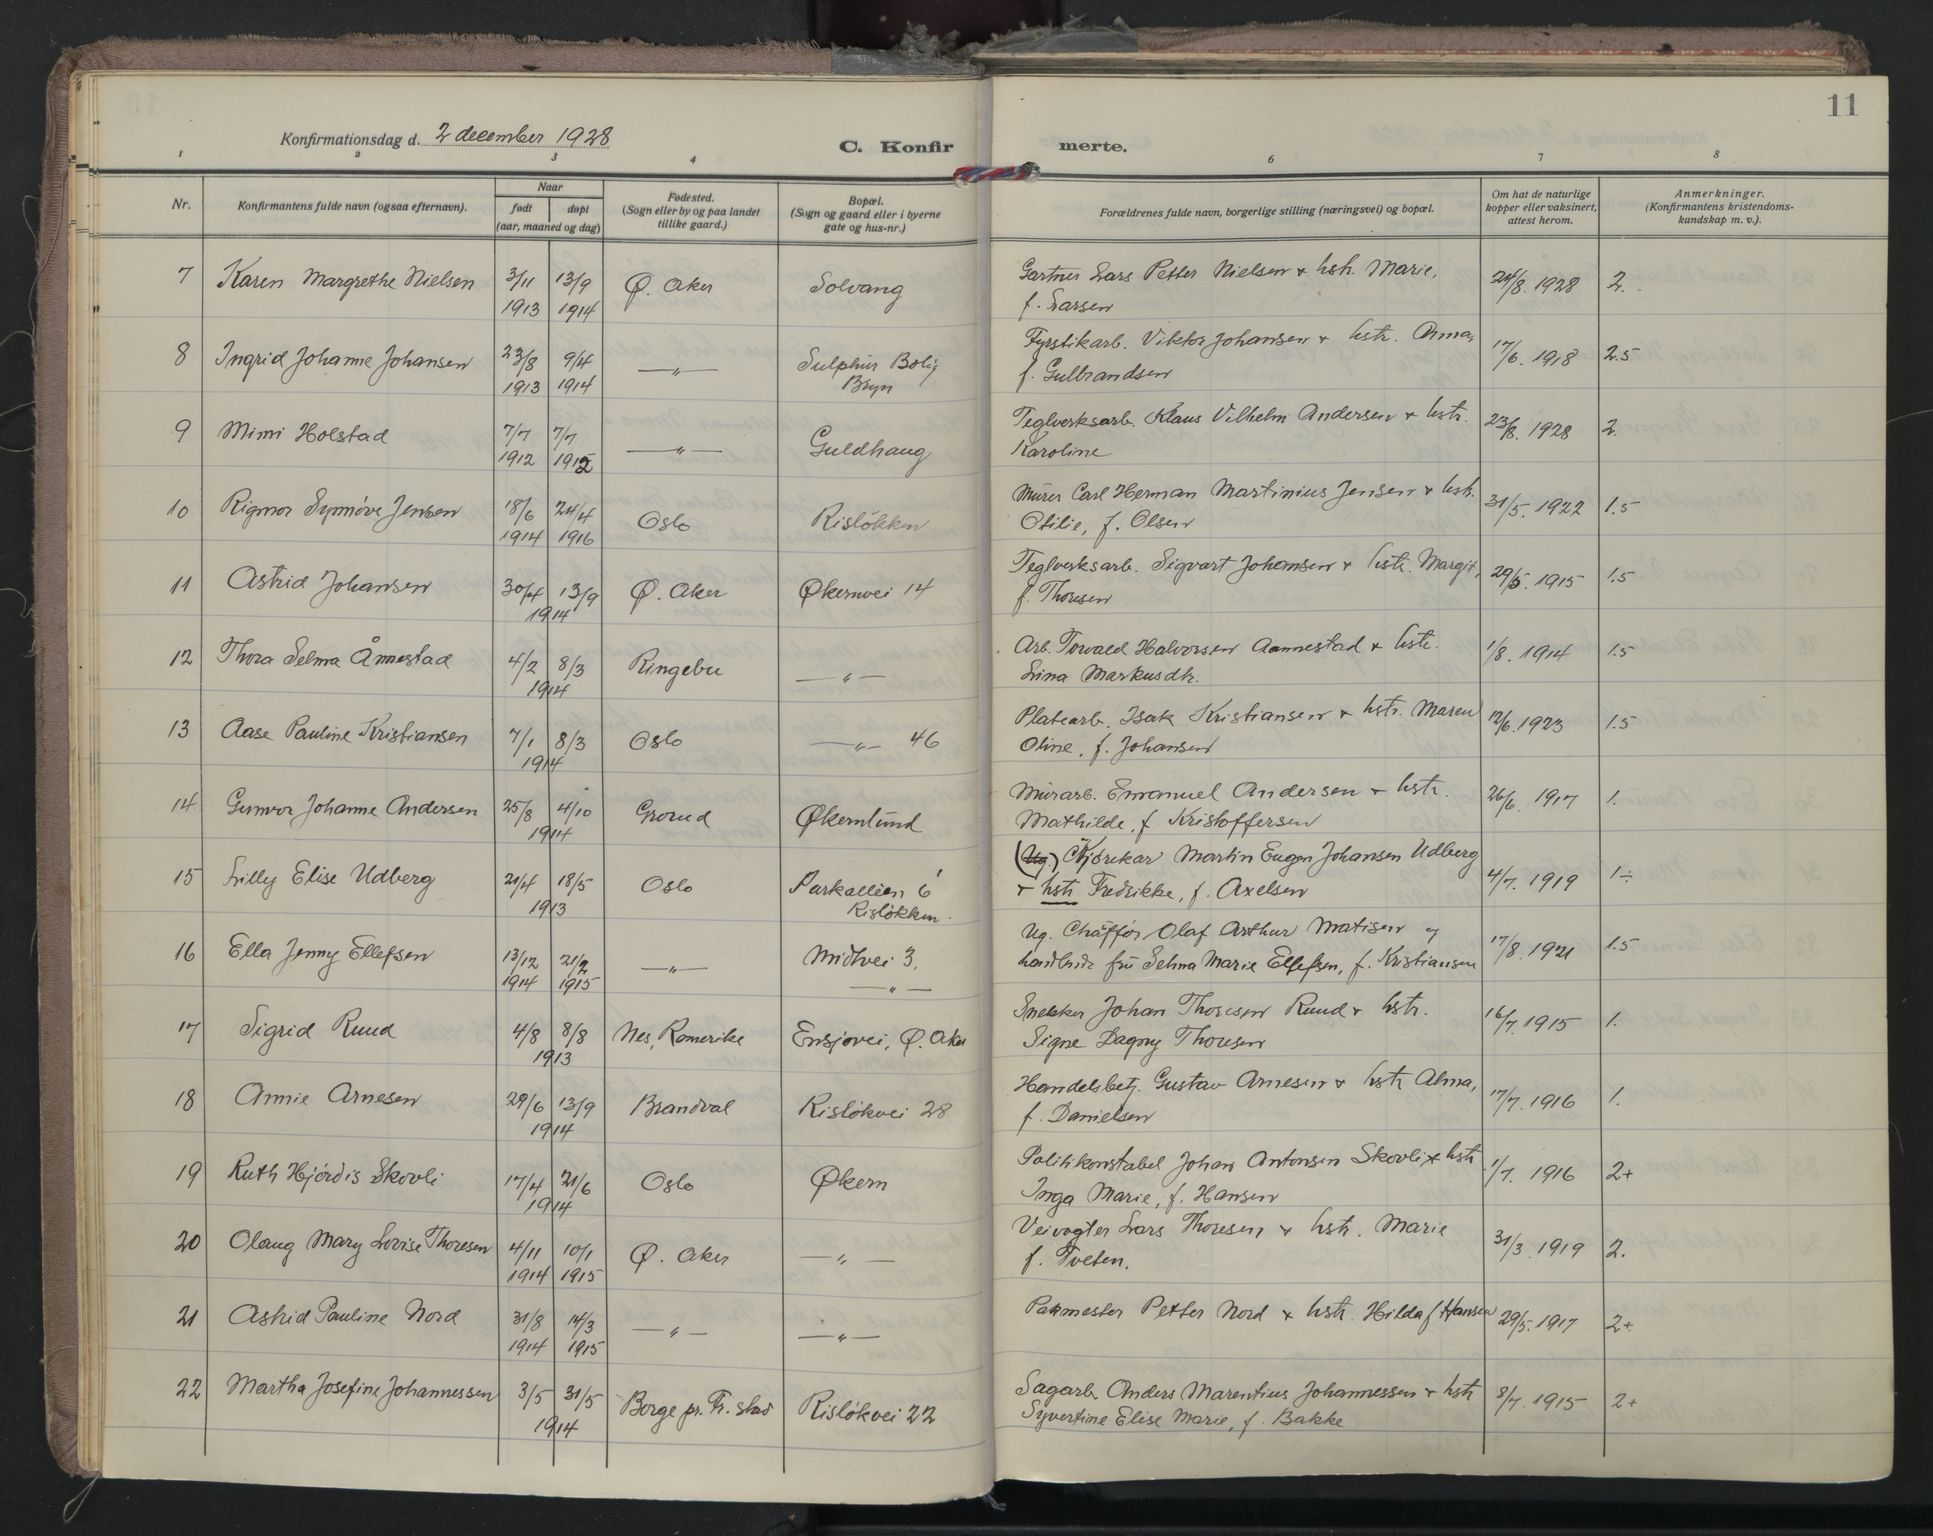 11
Konfirmationsdag d. 2 december 1928
C. Konfirmerte.
1 2 3 4 5 6 7 8
Nr.
Konfirmantens fulde navn (ogsaa efternavn).
Naar
født
døpt
(aar, maaned og dag)
Fødested.
(Sogn eller by og paa landet
tillike gaard.)
Bopæl.
(Sogn og gaard eller i byerne
gate og hus-nr.)
Forældrenes fulde navn, borgerlige stilling (næringsvei) og bopæl.
Om hat de naturlige
kopper eller vaksinert,
attest herom.
Anmerkninger.
(Konfirmantens kristendoms-
kundskap m. v.).
7 Karen Margrethe Nielsen 3/11 1913 13/9 1914 Ø. Aker Solvang
Gartner Lars Petter Nielsen + hstr. Marie,
f. Larsen
24/8. 1928 2.
8 Ingrid Johanne Johansen 23/8 1913 9/4 1914 —"— Sulphur Bolig
Bryn
Fyrstikarb. Viktor Johansen + hstr. Anna,
f. Gulbrandsen
17/6. 1918 2.5
9 Mimi Holstad 7/7 1912 7/7 1912 —"— Guldhaug
Teglverksarb. Klaus Vilhelm Andersen + hstr.
Karoline
23/8. 1928 2.
10 Rigmor Synnöve Jensen 18/6 1914 24/4 1916 Oslo Rislökken
Mürer Carl Herman Martinius Jensen + hstr.
Otilie, f. Olsen
31/5. 1922 1.5
11 Astrid Johansen 30/4 13/9 1914 Ø. Aker Økernvei 14
Teglverksarb. Sigvart Johansen + hstr. Margit,
f. Thoresen
29/5. 1915 1.5
12 Thora Selma Ånnestad 4/2 8/3 1914 Ringebu —"—
Arb. Torvald Halvorsen Aannestad + hstr.
Lina Markusdtr.
1/8. 1914 1.5
13 Aase Pauline Kristiansen 7/1 8/3 1914 Oslo —"— 46
Platearb. Isak Kristiansen + hstr. Maren
Oline, f. Johansen
12/6. 1923 1.5
14 Gunvor Johanne Andersen 25/8 4/10 1914 Grorud Økernlund
Mürarb. Emanuel Andersen + hstr.
Mathilde, f. Kristoffersen
26/6. 1917 1.
15 Lilly Elise Udberg 21/4 18/5 1913 Oslo Parkalleen 6
Rislökken.
(Ug.) Kjörekar Martin Eugen Johansen Udberg
+ hstr Fredrikke, f. Axelsen
4/7. 1919 1÷
16 Ella Jenny Ellefsen 13/12 1914 21/2 1915 —"— Midtvei 3.
—"—
Ug. Chäffør Olaf Arthur Matisen og
f. Kristiansen
frü Selma Marie Ellefsen,
17/8. 1921 1.5
17 Sigrid Ruud 4/8 8/8 1913 Nes, Romerike Ensjøvei, Ø. Aker
Snekker Johan Thoresen Ruud + hstr.
Signe Dagny Thoresen
16/7. 1915 1.
18 Annie Arnesen 29/6 13/9 1914 Brandval Rislökvei 28
Handelsbetj. Gustav Arnesen + hstr Alma,
f. Danielsen
17/7. 1916 1.
19 Ruth Hjördis Skovli 17/4 21/6 1914 Oslo Økern
Politikonstabel Johan Antonsen Skovli + hstr
Inga Marie, f. Hansen
1/7. 1916 2+
20 Olaug Mary Lovise Thoresen 4/11 1914 10/1 1915 Ø. Aker —"—
Veivogter Lars Thoresen + hstr. Marie
f. Tveten.
31/3. 1919 2.
21 Astrid Pauline Nord 31/8 1914 14/3 1915 —"— —"—
Pakmester Petter Nord + hstr. Hilda f. Hansen
29/5. 1917 2+
22 Martha Josefine Johannessen 3/5 31/5 1914 Borge pr. Fr. stad Rislökvei 22
Sagarb. Anders Marentius Johannessen + hstr
Syvertine Elise Marie, f. Bakke
8/7. 1915 2+